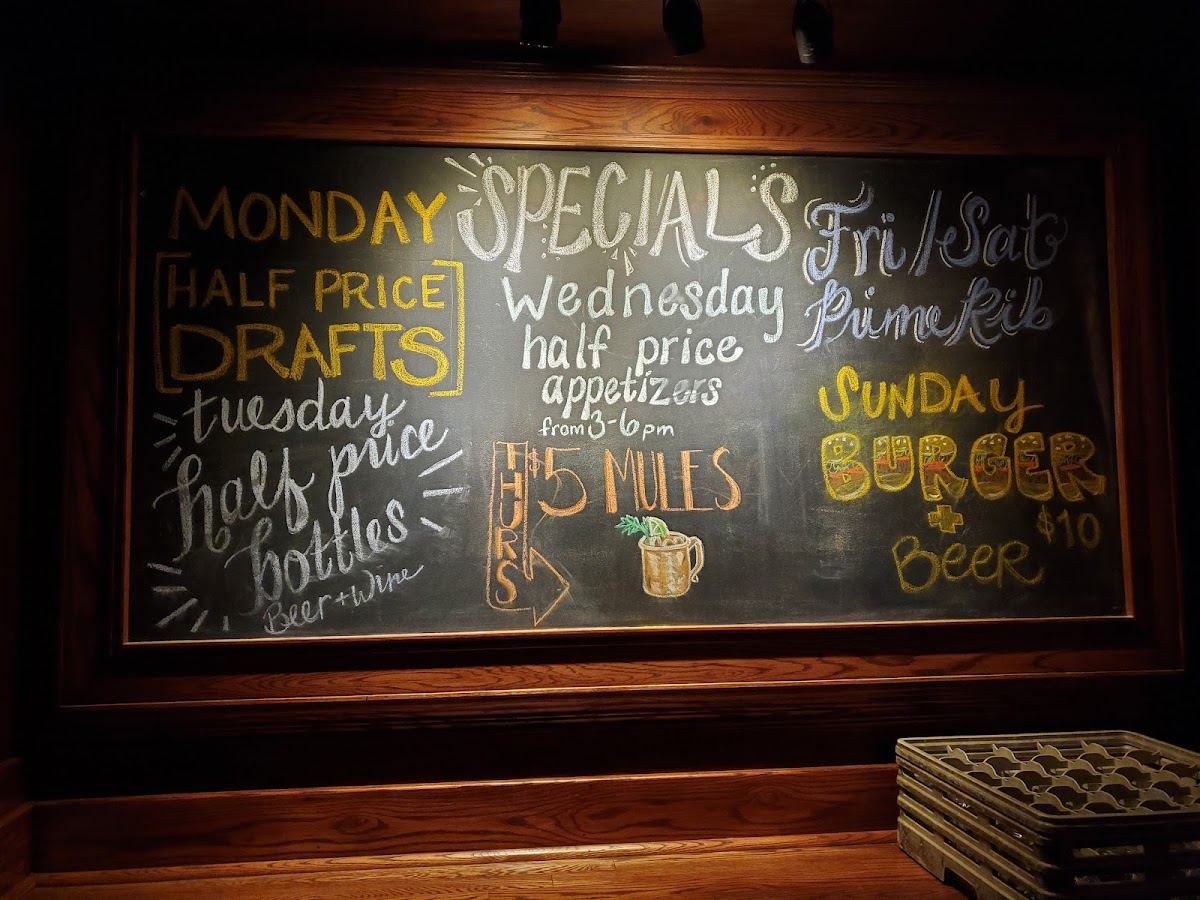 SPECIALS
MONDAY
HALF PRICE
DRAFTS
tuesday
half price
bottles
Beer + Wine
Wednesday
half price
appetizers
from 3-6pm
THURS
$5 MULES
Fri/Sat
Prime Rib
SUNDAY
BURGER
+
Beer $10